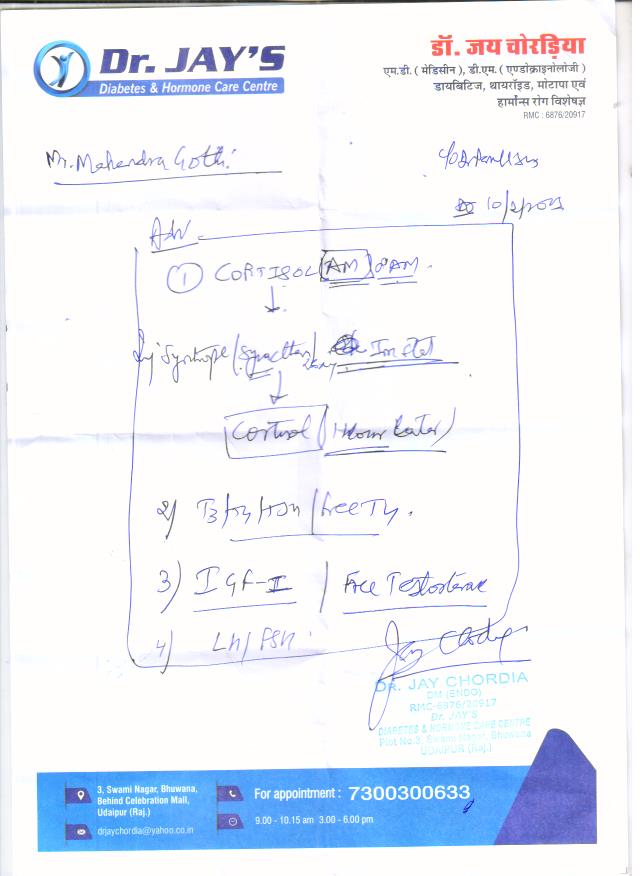 Dr. JAY'S
Diabetes & Hormone Care Centre
डॉ. जय चोरड़िया
एम.डी. ( मेडिसीन ), डी.एम. ( एण्डोक्राइनोलोजी )
डायबिटिज, थायरॉइड, मोटापा एवं
हार्मोन्स रोग विशेषज्ञ
RMC : 6876/20917
Mr. Mahendra Gothi
Adv
1 CORTISOL (AM) 8 AM.
Inj Synthope / Synacthen / Im stat
Cortisol (1 Hour Later)
2) T3 / T4 / TSH / free T4.
3) IGF-I / Free Testosterone
4) LH / FSH
DR. JAY CHORDIA
DM (ENDO)
RMC-6876/20917
Dr. JAY'S
DIABETES & HORMONE CARE CENTRE
Plot No.3, Swami Nagar, Bhuwana
UDAIPUR (Raj.)
3, Swami Nagar, Bhuwana,
Behind Celebration Mall,
Udaipur (Raj.)
drjaychordia@yahoo.co.in
For appointment : 7300300633
9.00 - 10.15 am 3.00 - 6.00 pm